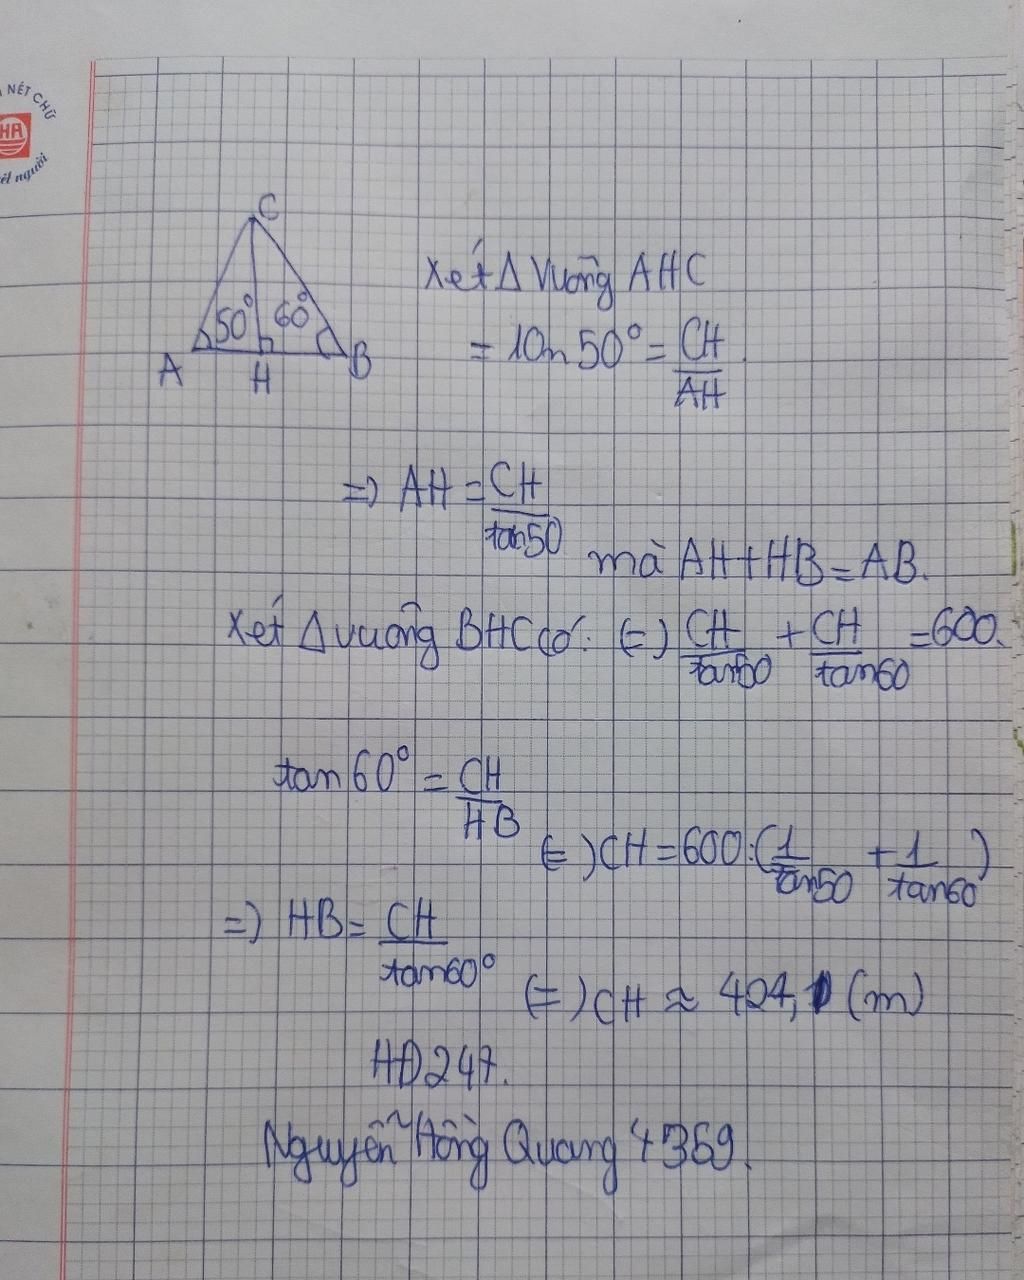 NÉT CHỮ
HA
nết người
C
50° 60°
A H B
Xét Δ vuông AHC
= tan 50° = CH/AH
=> AH = CH/tan50
mà AH+HB=AB.
Xét Δ vuông BHC có: (=) CH/tan50 + CH/tan60 = 600.
tan 60° = CH/HB
(=) CH = 600:(1/tan50 + 1/tan60)
=> HB = CH/tan60°
(=) CH ≈ 424,1 (m)
HĐ247.
Nguyễn Hồng Quang 4369.